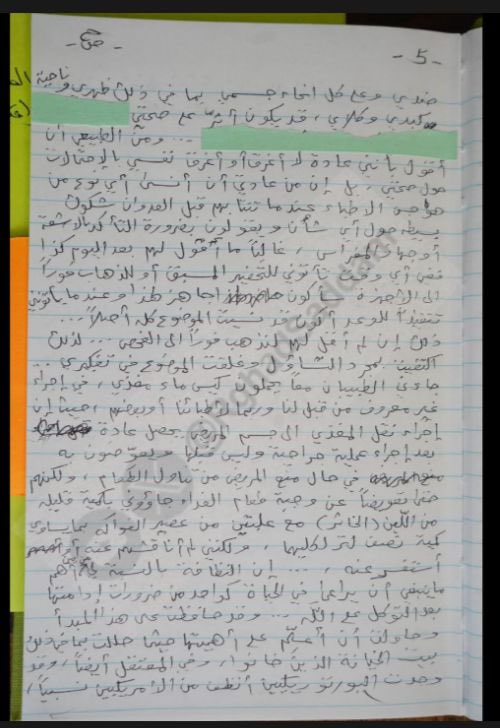 - ص -
- 5 -
صدري وعلى كل انحاء جسمي بما في ذلك ظهري وناحية
كبدي وكلاي، قد يكون أثّر على صحتي
... ومن الطبيعي أن
أقول بأنني عادة لا أغرق أو أعرق نفسي بالإحتمالات
حول صحتي، بل إن من عادتي أن أنسى أي نوع من
هواجس الأطباء عندما تنتابهم قبل العدوان شكوك
بسيطة حول أي شأن ويقولون بضرورة التأكد بالأشعة
أو جهاز المفراس، غالباً ما أقول لهم بعد اليوم كذا
ففي أي وقت تأتوني للتحضير المسبق أو للذهاب فوراً
الى الأجهزة سأكون جاهز لهذا وعندما يأتونني
تنفيذاً للوعد أكون قد نسيت الموضوع كله أصلاً...
ذلك إن لم أقل لهم لنذهب فوراً الى الفحص... لذلك
اكتفيت بمجرد التساؤل وغلقت الموضوع في تفكيري...
جاءني الطبيبان معاً يحملون كيس ماء مغذي، في إجراء
غير معروف من قبل لنا وربما لأطبائنا أو بعضهم، حيث إن
إجراء نقل المغذي الى جسم المريض يحصل عادة
بعد إجراء عملية جراحية وليس قبلها ويعوضون به
في حال منع المريض من تناول الطعام، ولكنهم
حتى تعويضاً عن وجبة طعام الغداء جاؤوني بكمية قليلة
من اللبن (الخاثر) مع علبتين من عصير الفواكه بما يساوي
كمية نصف لتر لكليهما، ولكنني لم أناقشهم عنه أو
أستفسر عنه، .... إن النظافة بالنسبة لي أهم
ما ينبغي أن يراعى في الحياة كواحد من ضرورات إدامتها
بعد التوكل على الله... وقد حافظت على هذا المبدأ
وحاولت أن أعلّم على أهميتها حيثما حللت بما في ذلك
بيت الخيانة الذين خانوا، وفي المعتقل أيضاً، وقد
وجدت البورتوريكيين أنظف من الأمريكيين نسبياً،